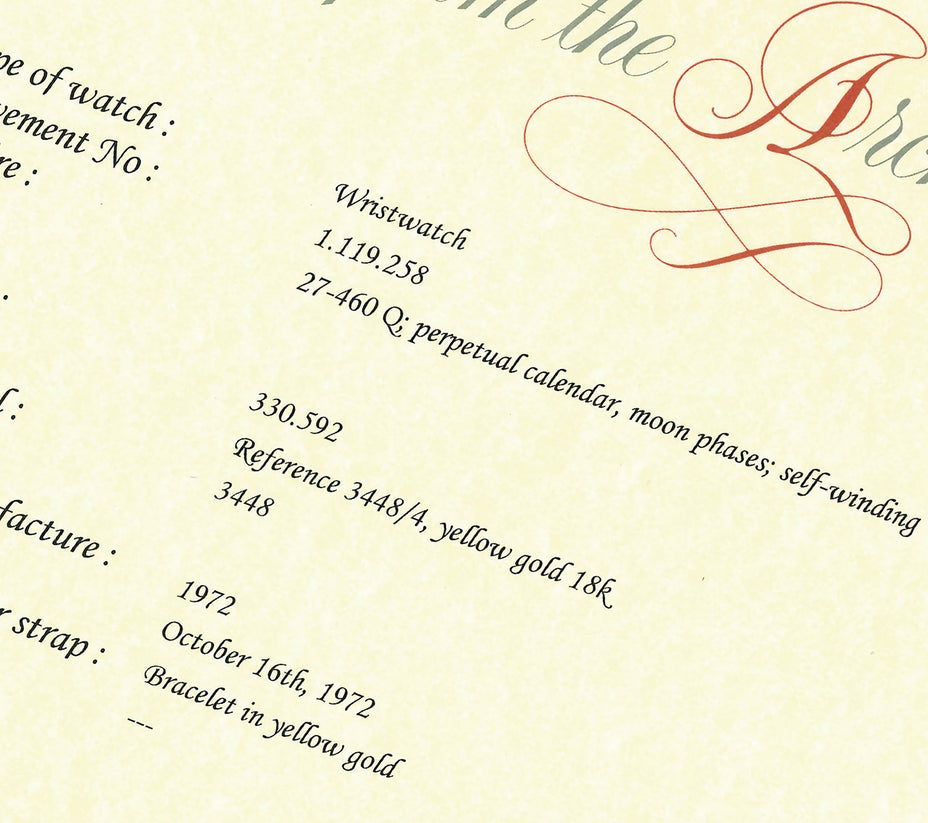 the Arc
pe of watch :
vement No :
re :
Wristwatch
1.119.258
27-460 Q; perpetual calendar, moon phases; self-winding
l :
330.592
Reference 3448/4, yellow gold 18k
3448
facture :
1972
October 16th, 1972
r strap :
Bracelet in yellow gold
---